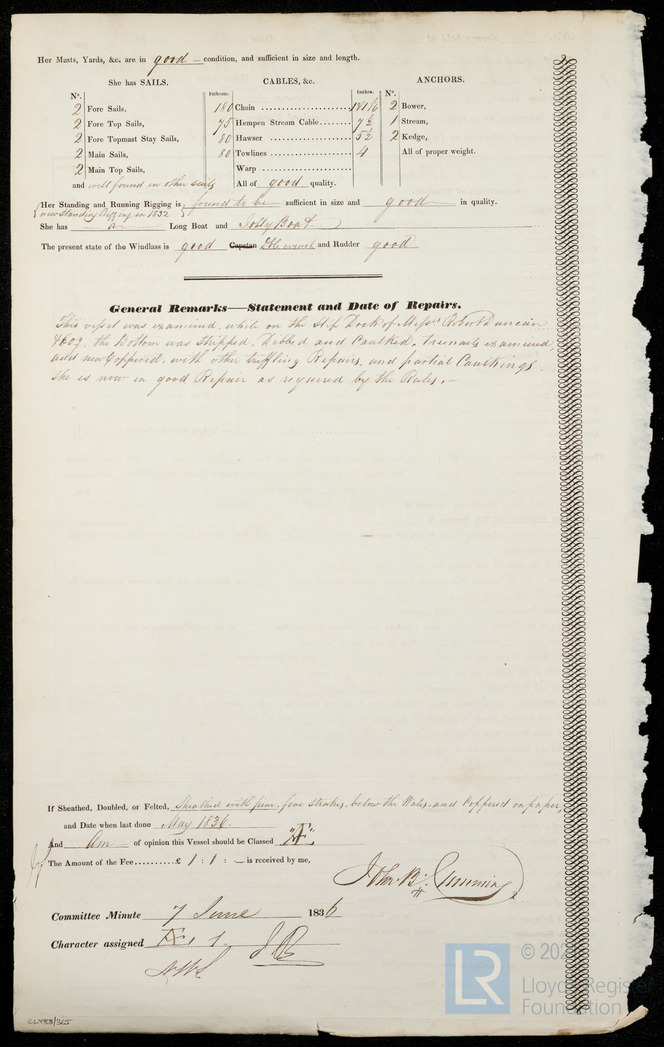 Her Masts, Yards, &c. are in good condition, and sufficient in size and length.
She has SAILS. CABLES, &c. ANCHORS.
No. Fathoms. Inches. No.
2 Fore Sails, 180 Chain 1 1/16 2 Bower,
2 Fore Top Sails, 75 Hempen Stream Cable 7½ 1 Stream,
2 Fore Topmast Stay Sails, 80 Hawser 5½ 2 Kedge,
2 Main Sails, 80 Towlines 4 All of proper weight.
2 Main Top Sails, Warp
and well found in other sails All of good quality.
Her Standing and Running Rigging is found to be sufficient in size and good in quality.
new Standing Rigging in 1832
She has a Long Boat and Jolly Boat
The present state of the Windlass is good Capstan winch and Rudder good
General Remarks—Statement and Date of Repairs.
This vessel was examined, while on the Slip Dock of Messrs Duncan
the Bottom was stripped, Dubbed and Caulked, treenails examined,
and new Coppered, with other trifling Repairs, and partial Caulkings
She is now in good Repair as required by the Rules.—
If Sheathed, Doubled, or Felted, Sheathed with five strakes, below the Wales, and Coppered on paper,
and Date when last done May 1836.
And Am of opinion this Vessel should be Classed "Æ"
The Amount of the Fee..........£ 1 : 1 : — is received by me,
John B.
Committee Minute 7 June 1836
Character assigned Æ. 1
CLYRS/325
LR
Lloyd's Register
Foundation